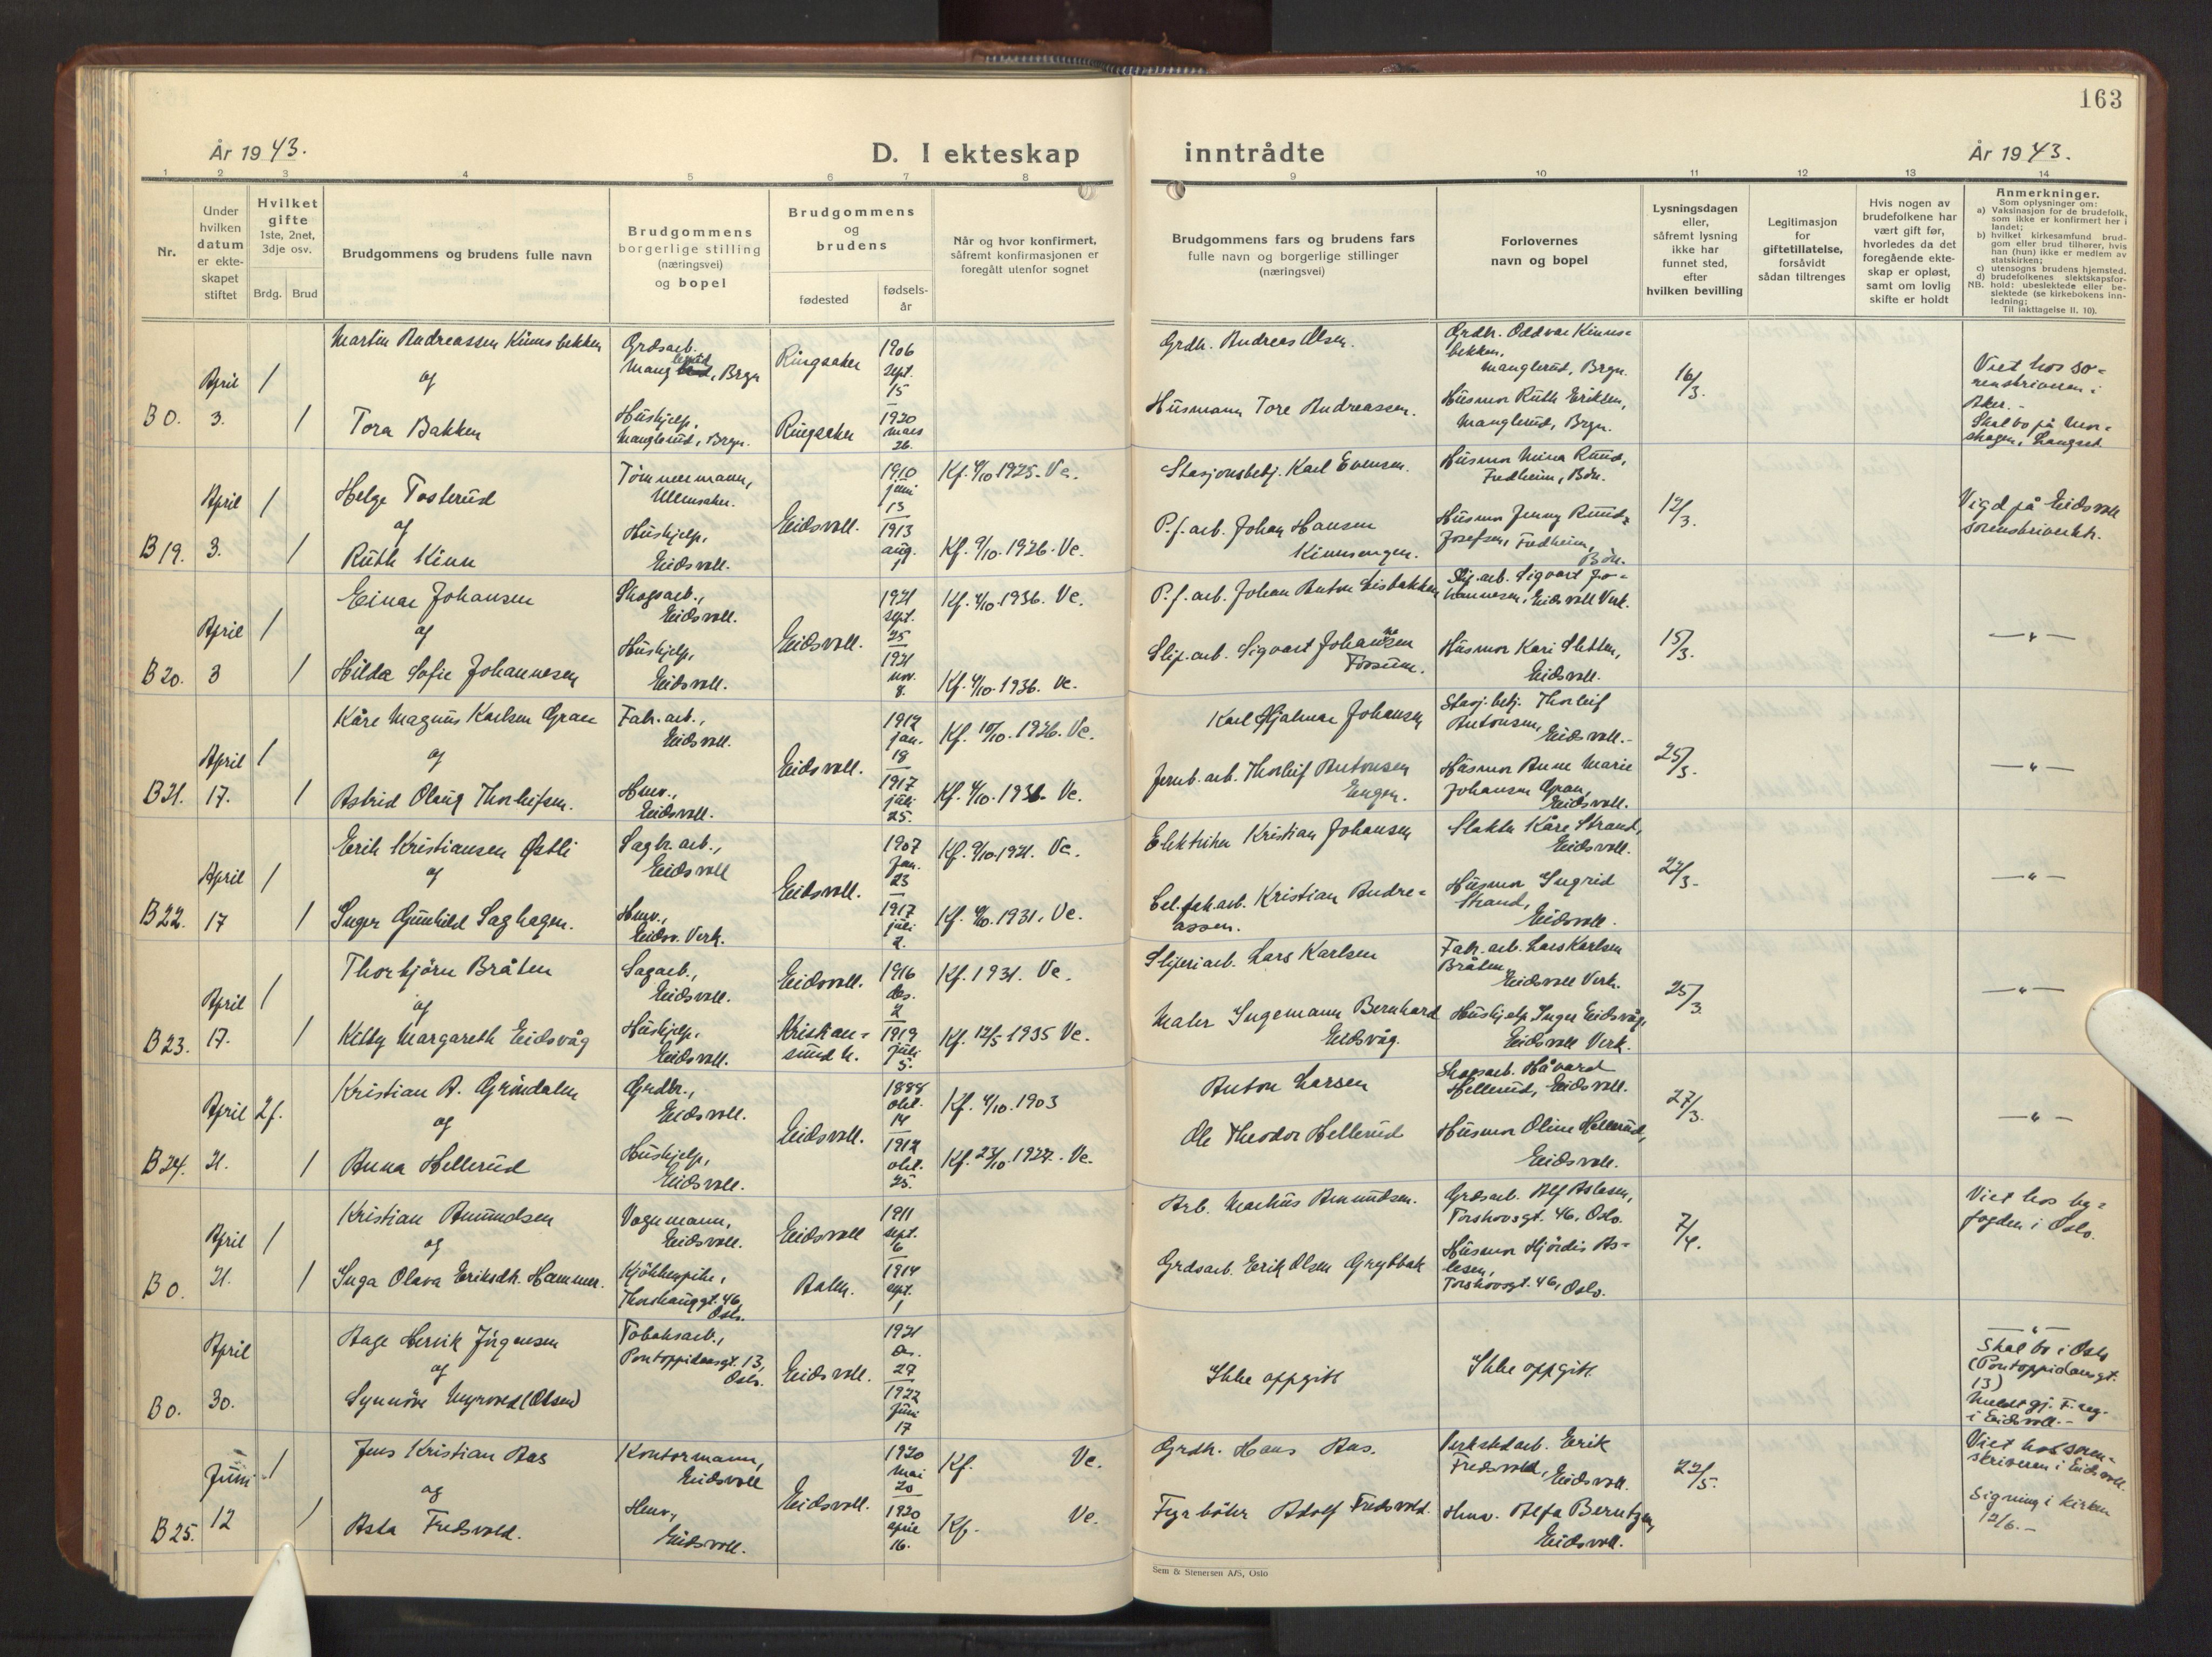 163
År 1943.
D. I ekteskap inntrådte
År 1943.
1 2 3 4 5 6 7 8 9 10 11 12 13 14
Nr.
Under
hvilken
datum
er ekte-
skapet
stiftet
Hvilket
gifte
1ste, 2net,
3dje osv.
Brdg. Brud
Brudgommens og brudens fulle navn
Brudgommens
borgerlige stilling
(næringsvei)
og bopel
Brudgommens
og
brudens
fødested
fødsels-
år
Når og hvor konfirmert,
såfremt konfirmasjonen er
foregått utenfor sognet
Brudgommens fars og brudens fars
fulle navn og borgerlige stillinger
(næringsvei)
Forlovernes
navn og bopel
Lysningsdagen
eller,
såfremt lysning
ikke har
funnet sted,
efter
hvilken bevilling
Legitimasjon
for
giftetillatelse,
forsåvidt
sådan tiltrenges
Hvis nogen av
brudefolkene har
vært gift før,
hvorledes da det
foregående ekte-
skap er opløst,
samt om lovlig
skifte er holdt
Anmerkninger.
Som oplysninger om:
a) Vaksinasjon for de brudefolk,
som ikke er konfirmert her i
landet;
b) hvilket kirkesamfund brud-
gom eller brud tilhører, hvis
han (hun) ikke er medlem av
statskirken;
c) utensogns brudens hjemsted.
d) brudefolkenes slektskapsfor-
hold: ubeslektede eller be-
NB. slektede (se kirkebokens inn-
ledning;
Til iakttagelse II. 10).
B 0.
April
3.
1
1
Martin Andreassen Kinnsbekken
og
Tora Bakken
Grdsarb.
Manglerud, Brgn
Hushjelp,
Manglerud, Brgn.
Ringsaker
Ringsaker
1906
sept.
15
1920
mars
26.
Grdb. Andreas Olsen.
Husmann Tore Andreassen.
Grdb. Oddvar Kinns-
bekken,
Manglerud, Brgn.
Husmor Ruth Eriksen,
Manglerud, Brgn.
16/3.
Viet hos so-
renskriveren i
Aker.-
Skal bo på
Langset.
B 19.
April
3.
1
1
Helge Tosterud
og
Ruth Kinn
Tømmermann,
Ullensaker.
Hushjelp,
Eidsvoll.
Eidsvoll.
1910
juni
13
1913
aug.
1
Kf. 4/10.1925. Ve.
Kf. 9/10.1926. Ve.
Stasjonsbetj. Karl Evensen.
P.f.arb. Johan Hansen
Kinnsengen.
Husmor Mina Ruud,
Fredheim, Bøn.
Husmor Jenny Ruud-
Josefsen, Fredheim,
Bøn.
12/3.
Vigd på Eidsvoll
sorenskriverktr.
B 20.
April
3
1
1
Einar Johansen
og
Hilda Sofie Johannesen
Skogsarb.,
Eidsvoll.
Hushjelp,
Eidsvoll.
Eidsvoll.
1921
sept.
25
1921
nov.
8.
Kf. 4/10.1936. Ve.
Kf. 4/10.1936. Ve.
P.f.arb. Johan Anton Lisbakken
Slip.arb. Sigvart Johannesen
Fossum.
Slip.arb. Sigvart Jo-
hannesen, Eidsvoll Verk.
Husmor Kari Sletten,
Eidsvoll.
15/3.
— „ —
B 21.
April
17.
1
1
Kåre Magnus Karlsen Gran
og
Astrid Olaug Thorleifsen.
Fabr.arb.,
Eidsvoll.
Hmv.,
Eidsvoll.
Eidsvoll.
1912
jan.
18
1917
juli
25.
Kf. 10/10.1926. Ve.
Kf. 4/10.1931. Ve.
Karl Hjalmar Johansen
Jernb.arb. Thorleif Antonsen
Engen.
Stasj.betj. Thorleif
Antonsen,
Eidsvoll.-
Husmor Anne Marie
Johansen Gran,
Eidsvoll.
25/3.
— „ —
B 22.
April
17
1
1
Erik Kristiansen Østli
og
Inger Gunhild Saghagen.
Sagbr.arb.,
Eidsvoll
Hmv.,
Eidsv. Verk.
Eidsvoll.
1907
jan.
23
1917
juli
2.
Kf. 9/10.1921. Ve.
Kf. 4/10.1931. Ve.
Elektriker Kristian Johansen
Cel.fab.arb. Kristian Andre-
assen.
Slakter Kåre Strand,
Eidsvoll.
Husmor Ingrid
Strand,
Eidsvoll.
22/3.
— „ —
B 23.
April
17.
1
1
Thorbjörn Bråten
og
Kitty Margareth Eidsvåg
Sagarb.,
Eidsvoll.
Hushjelp,
Eidsvoll.
Eidsvoll.
Kristian-
sund N.
1916
des.
2
1919
juli
5.
Kf. 1931. Ve.
Kf. 12/5-1935 Ve.
Sliperiarb. Lars Karlsen
Maler Ingemann Bernhard
Eidsvåg.
Fabr.arb. Lars Karlsen
Bråten,
Eidsvoll Verk.
Hushjelp Inger Eidsvåg,
Eidsvoll Verk.
25/3.
— „ —
B 24.
April
21.
2f.
1
Kristian A. Gröndalen
og
Anna Hellerud
Grdbr.,
Eidsvoll.
Hushjelp,
Eidsvoll.
Eidsvoll.
1888
okt.
14
1912
okt.
25.
Kf. 4/10.1903
Kf. 23/10.1927. Ve.
Anton Larsen
Ole Theodor Hellerud
Skogsarb. Håvard
Hellerud, Eidsvoll.
Husmor Oline Hellerud,
Eidsvoll.
27/3.
— „ —
B 0.
April
21.
1
1
Kristian Amundsen
og
Inga Olava Eriksdtr. Hammer.
Vognmann,
Eidsvoll.
Kjökkenpike,
Thorshauggt. 46,
Oslo.
Eidsvoll
Asker.
1911
sept.
6
1914
sept.
1
Arb. Markus Amundsen.
Grdsarb. Erik Olsen
Grdsarb. Alf Aslesen,
Torshovsgt. 46, Oslo.
Husmor Hjördis As-
lesen,
Torshovsgt. 46, Oslo.
7/4.
Viet hos by-
fogden i Oslo.
B 0.
April
30.
Aage Henrik Jörgensen
og
Synnöve Myrvold (Olsen)
Tobaksarb.,
Pontoppidansgt. 13,
Oslo.
Eidsvoll.
1921
des.
29
1922
juni
17
Ikke oppgitt
Ikke oppgitt
— „ —
Skal bo i Oslo
(Pontoppidansgt.
13)
Meldt gj. F.reg.
i Eidsvoll.-
B 25.
Juni
12
1
1
Jens Kristian Aas
og
Asta Fredsvold.
Kontormann,
Eidsvoll
Hmv.,
Eidsvoll.
Eidsvoll.
1920
mai
20
1920
april
16.
Kf. Ve.
Kf. Ve.
Grdb. Hans Aas.
Fyrböter Adolf Fredsvold.
Verkstedarb. Erik
Fredsvold,
Eidsvoll.
Hmv. Alfa Berntzen,
Eidsvoll.
22/5.
Viet hos soren-
skriveren i Eidsvoll.
Signing i kirken
12/6.-
Sem & Stenersen A/S, Oslo